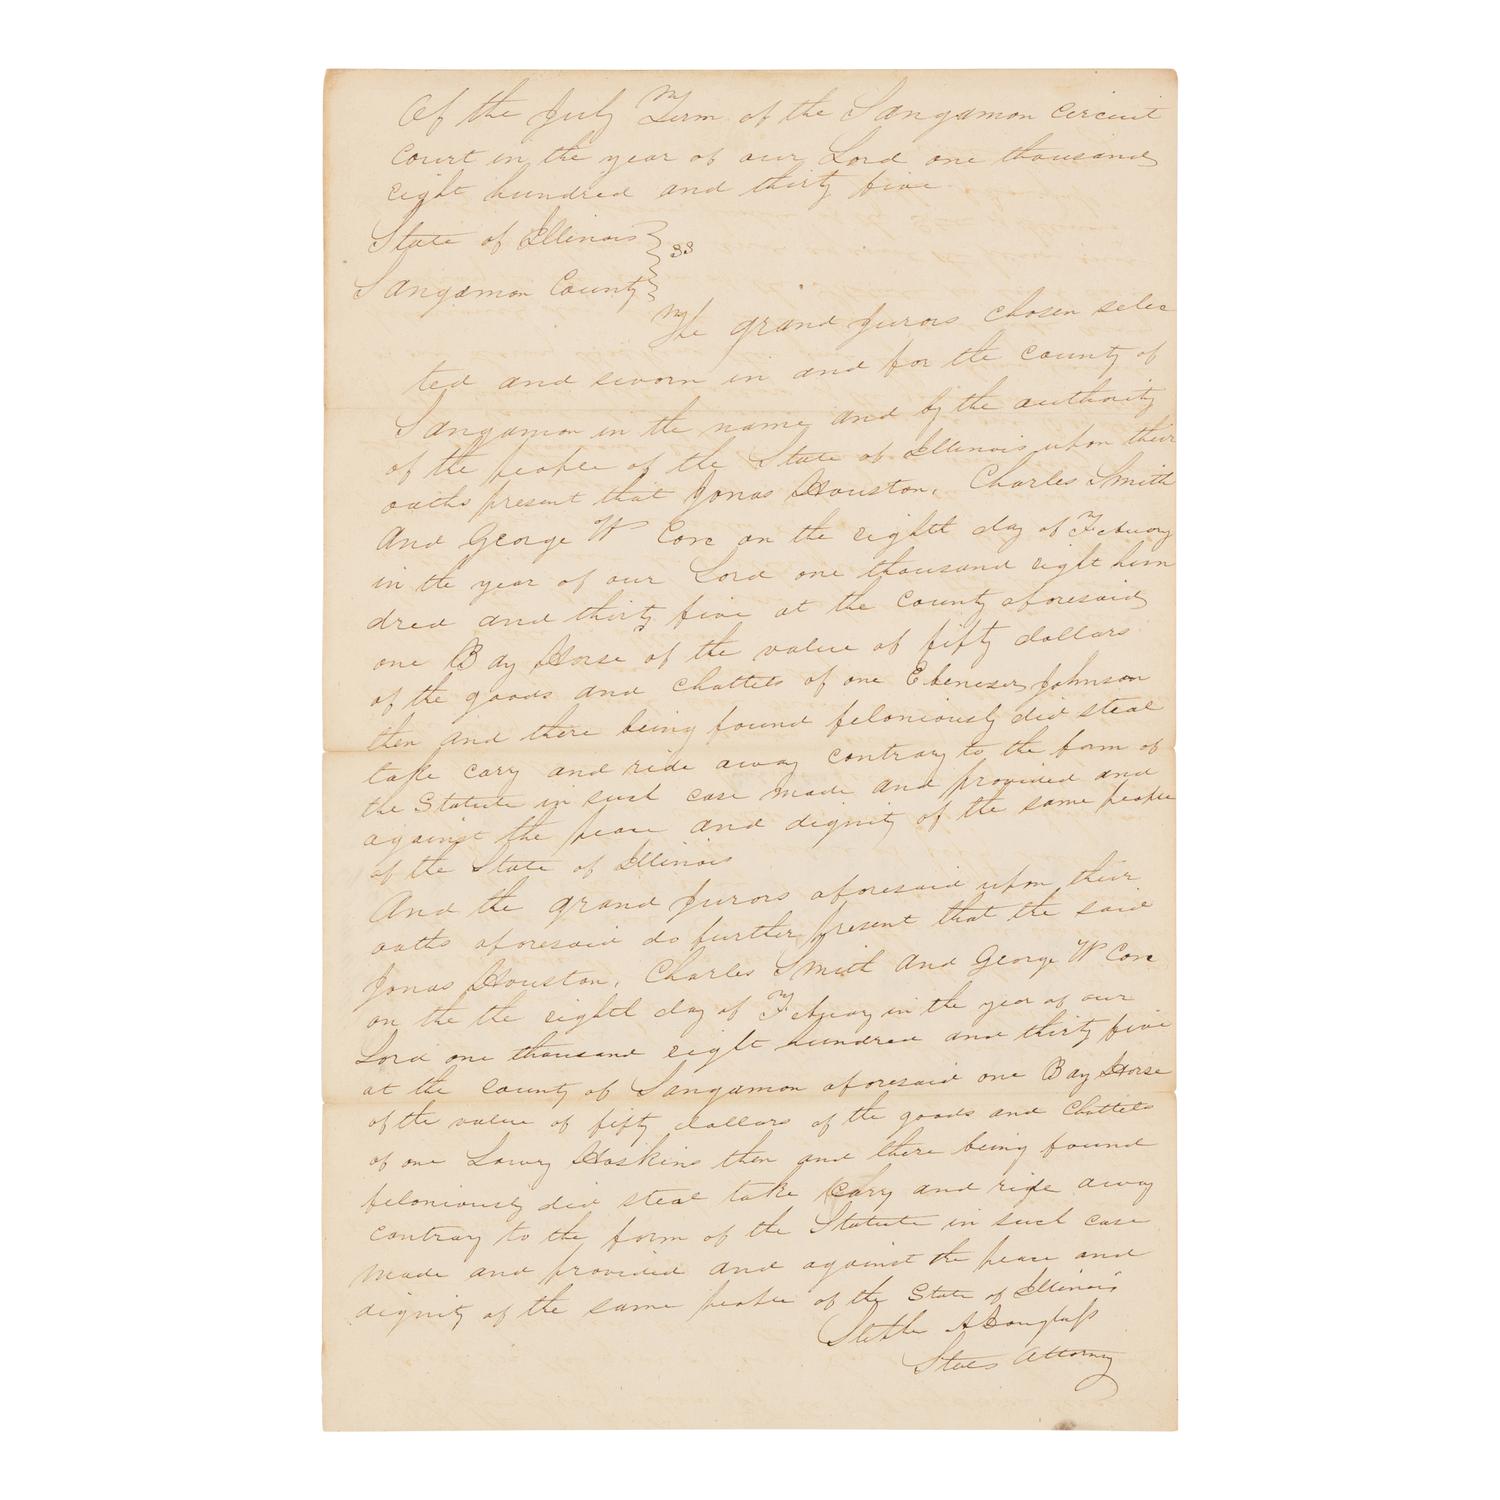 Of the July Term of the Sangamon circuit
court in the year of our Lord one thousand
eight hundred and thirty five
State of Illinois } ss
Sangamon County }
The grand Jurors chosen selec
ted and sworn in and for the county of
Sangamon in the name and by the authority
of the people of the State of Illinois upon their
oaths present that Jonas Houston, Charles Smith
And George W Core on the eighth day of February
in the year of our Lord one thousand eight hun
dred and thirty five at the county aforesaid
one Bay Horse of the value of fifty dollars
of the goods and chattels of one Ebenezer Johnson
then and there being found feloniously did steal
take cary and ride away contrary to the form of
the Statute in such case made and provided and
against the peace and dignity of the same people
of the State of Illinois
And the grand Jurors aforesaid upon their
oaths aforesaid do further present that the said
Jonas Houston, Charles Smith And George W Core
on the the eighth day of February in the year of our
Lord one thousand eight hundred and thirty five
at the county of Sangamon aforesaid one Bay Horse
of the value of fifty dollars of the goods and Chattels
of one Lowry Hoskins then and there being found
feloniously did steal take cary and ride away
contrary to the form of the Statute in such case
made and provided and against the peace and
dignity of the same people of the State of Illinois
A Douglass
States Attorney